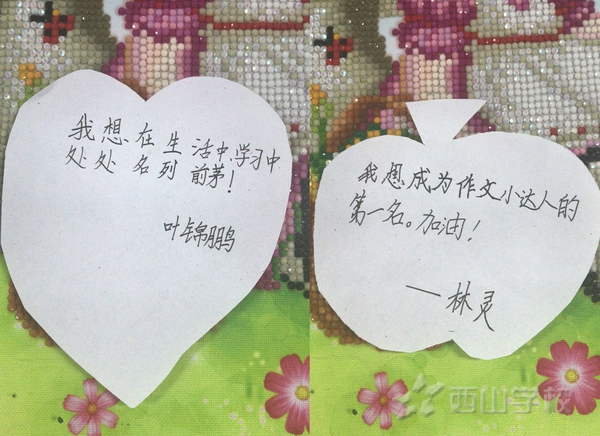 我想在生活中、学习中
处处名列前茅！
叶锦鹏
我想成为作文小达人的
第一名。加油！
——林灵
西山学校